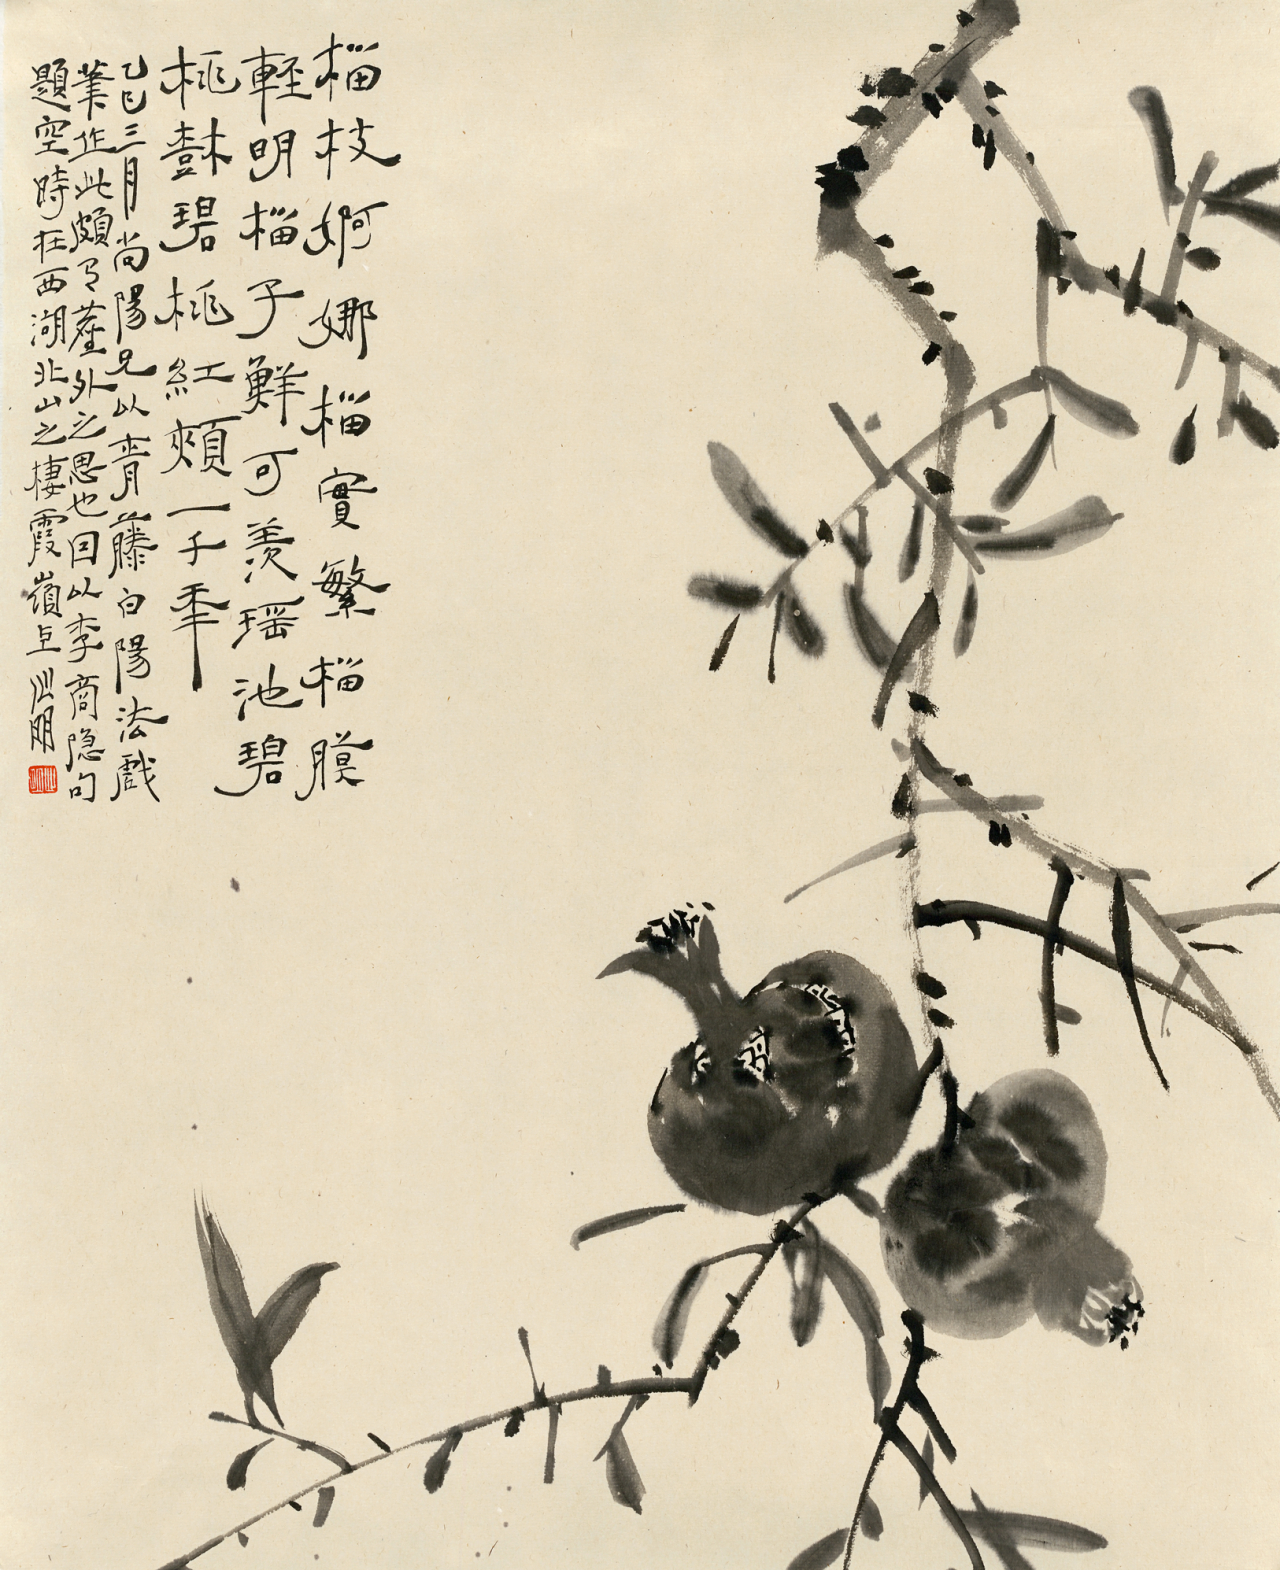 榴枝婀娜榴實繁榴膜
輕明榴子鮮可羨瑤池碧
桃樹碧桃紅頰一千年
乙巳三月尚陽兄以青藤白陽法戲
筆作此頗有塵外之思也因以李商隐句
題空時在西湖北山之棲霞嶺上明